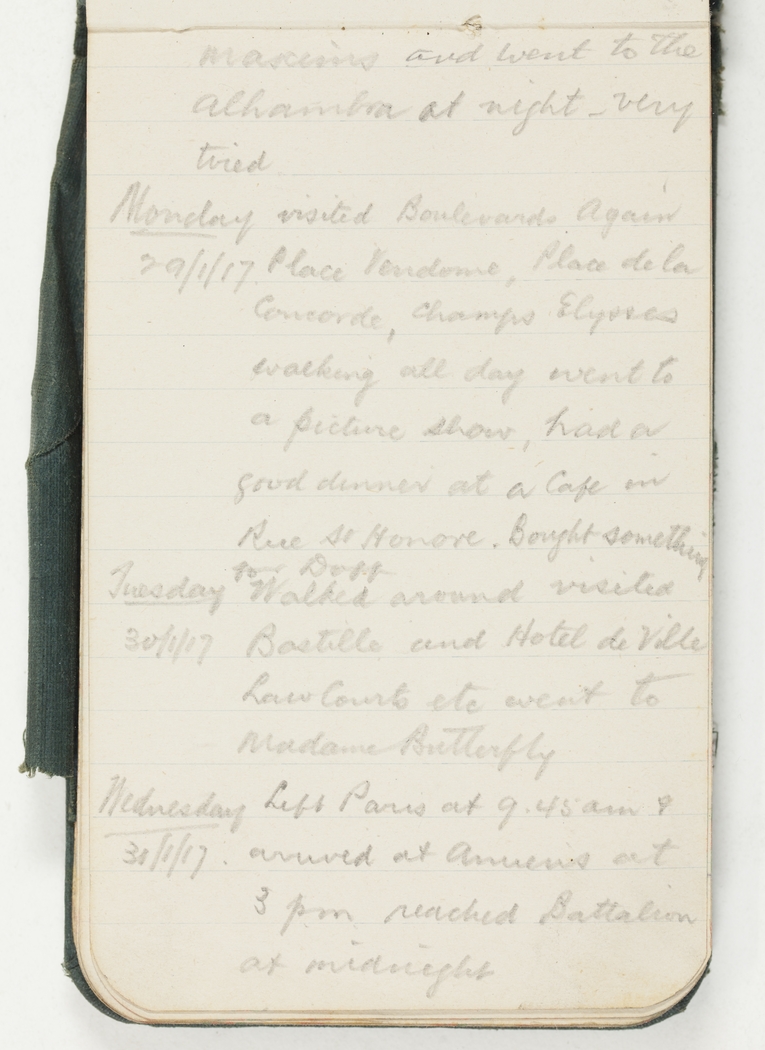 Maxims and went to the
Alhambra at night - very
tired
Monday visited Boulevards Again
29/1/17 Place Vendome, Place de la
Concorde, Champs Elysses
walking all day went to
a picture show, had a
good dinner at a Cafe in
Rue St Honore. Bought something
for
Tuesday Walked around visited
30/1/17 Bastille and Hotel de Ville
Law Courts etc went to
Madame Butterfly
Wednesday Left Paris at 9.45 am &
31/1/17. arrived at Amiens at
3 pm reached Battalion
at midnight